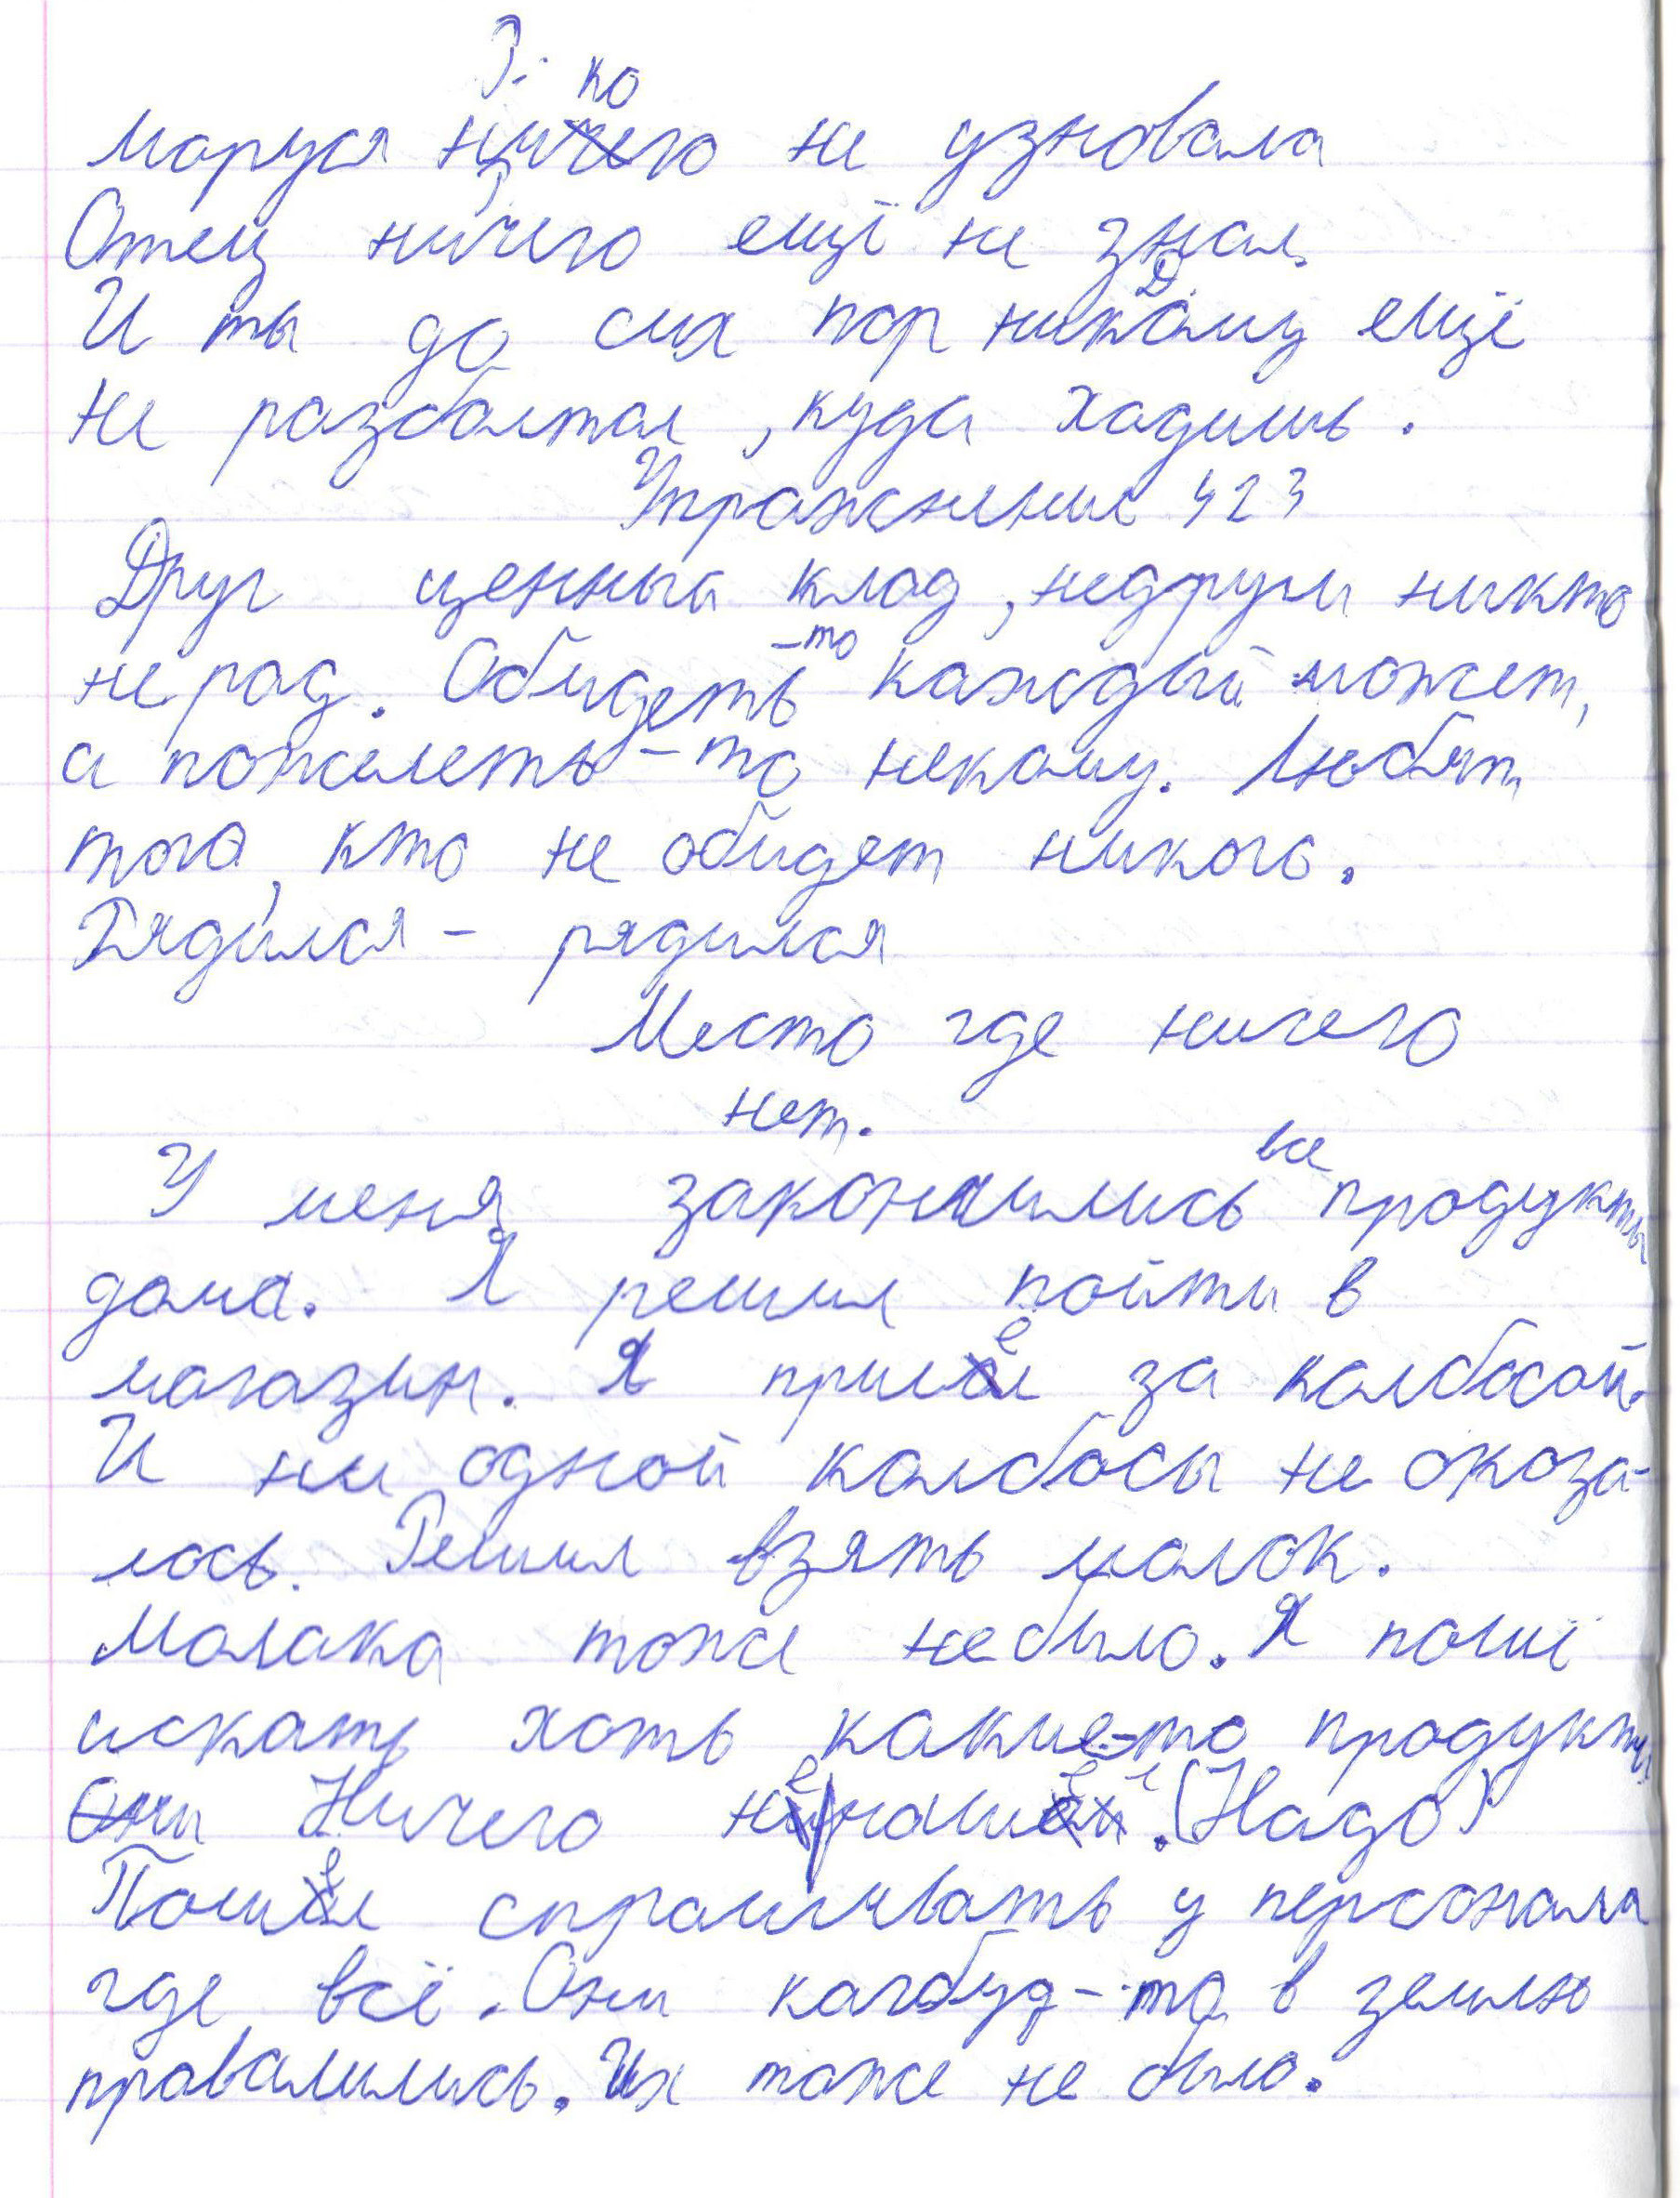 Р.
ко
Маруся ничего не узновала
Отец ничего ещё не знал.
И ты до сих пор никому ещё
не разболтал, куда ходишь.
Упражнение 423
Друг ценный клад, недругу никто
не рад. Обидеть-то каждый может,
а пожелеть-то некому. Любят
того, кто не обидет никого.
Рядился - рядился
Место где ничего
нет.
У меня закончились все продукты
дома. Я решил пойти в
магазин. Я пришёл за колбосой.
И ни одной колбосы не окоза-
лось. Решил взять молок.
Молака тоже небыло. Я пошё
искать хоть какие-то продукты
Они Ничего не нашёл. (Надо)
Пошёл спрашивать у персонала
где всё. Они какбуд-то в землю
провалились. Их тоже не было.